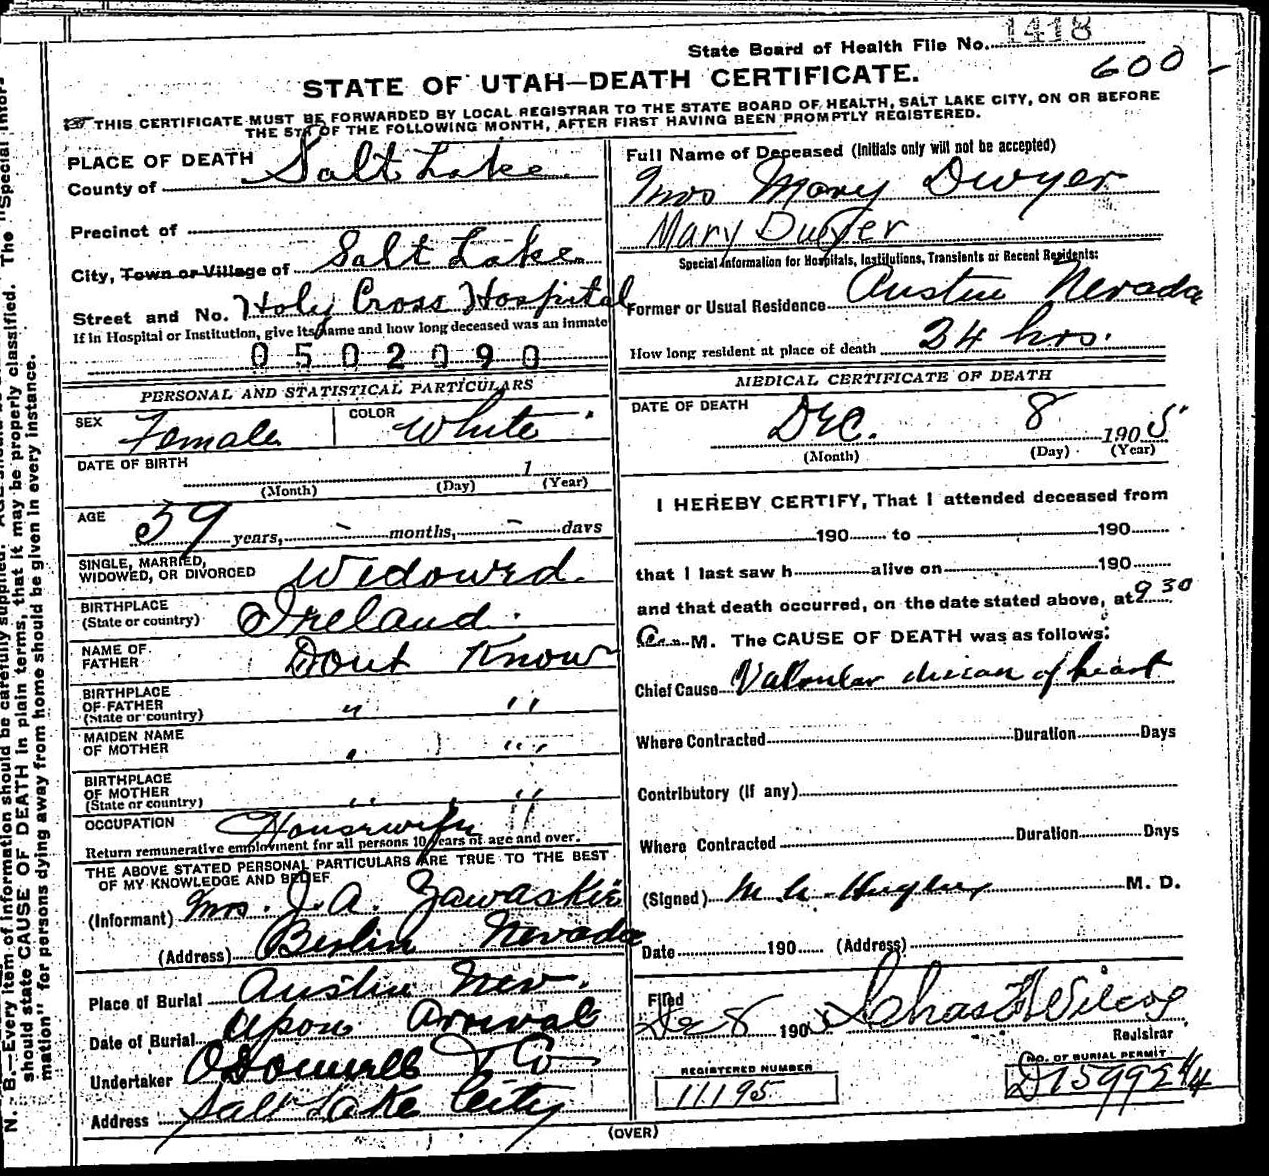 State Board of Health File No. 1418
600-
STATE OF UTAH—DEATH CERTIFICATE.
THIS CERTIFICATE MUST BE FORWARDED BY LOCAL REGISTRAR TO THE STATE BOARD OF HEALTH, SALT LAKE CITY, ON OR BEFORE
THE 5TH OF THE FOLLOWING MONTH, AFTER FIRST HAVING BEEN PROMPTLY REGISTERED.
PLACE OF DEATH
County of Salt Lake.
Precinct of
City, Town or Village of Salt Lake.
Street and No. Holy Cross Hospital
If in Hospital or Institution, give its name and how long deceased was an inmate
0502090
PERSONAL AND STATISTICAL PARTICULARS
SEX Female COLOR White
DATE OF BIRTH 1
(Month) (Day) (Year)
AGE 39 years, - months, - days
SINGLE, MARRIED,
WIDOWED, OR DIVORCED Widowed.
BIRTHPLACE
(State or country) Ireland.
NAME OF
FATHER Dont Know
BIRTHPLACE
OF FATHER
(State or country) " "
MAIDEN NAME
OF MOTHER " "
BIRTHPLACE
OF MOTHER
(State or country) " "
OCCUPATION Housewife
Return remunerative employment for all persons 10 years of age and over.
THE ABOVE STATED PERSONAL PARTICULARS ARE TRUE TO THE BEST
OF MY KNOWLEDGE AND BELIEF
(Informant) Mrs. J. A. Zawaskie
(Address) Berlin Nevada
Place of Burial Austin Nev.
Date of Burial Upon Arrival
Undertaker O'Donnell & Co
Address Salt Lake City
Full Name of Deceased (Initials only will not be accepted)
Mrs Mary Dwyer
Mary Dwyer
Special Information for Hospitals, Institutions, Transients or Recent Residents:
Former or Usual Residence Austin Nevada
How long resident at place of death 24 hrs.
MEDICAL CERTIFICATE OF DEATH
DATE OF DEATH DEC. 8 1905
(Month) (Day) (Year)
I HEREBY CERTIFY, That I attended deceased from
190 to 190
that I last saw h alive on 190
and that death occurred, on the date stated above, at 9 30
a. M. The CAUSE OF DEATH was as follows:
Chief Cause Valvular disease of heart
Where Contracted Duration Days
Contributory (If any)
Where Contracted Duration Days
(Signed) Hughes M. D.
Date 190 (Address)
Filed
Dec 8 1905 Chas H Wilcox
Registrar
REGISTERED NUMBER
11195
NO. OF BURIAL PERMIT
D15992
(OVER)
N. B.—Every item of information should be carefully supplied. AGE should
should state CAUSE OF DEATH in plain terms, that it may be properly classified. The "Special Infor-
mation" for persons dying away from home should be given in every instance.